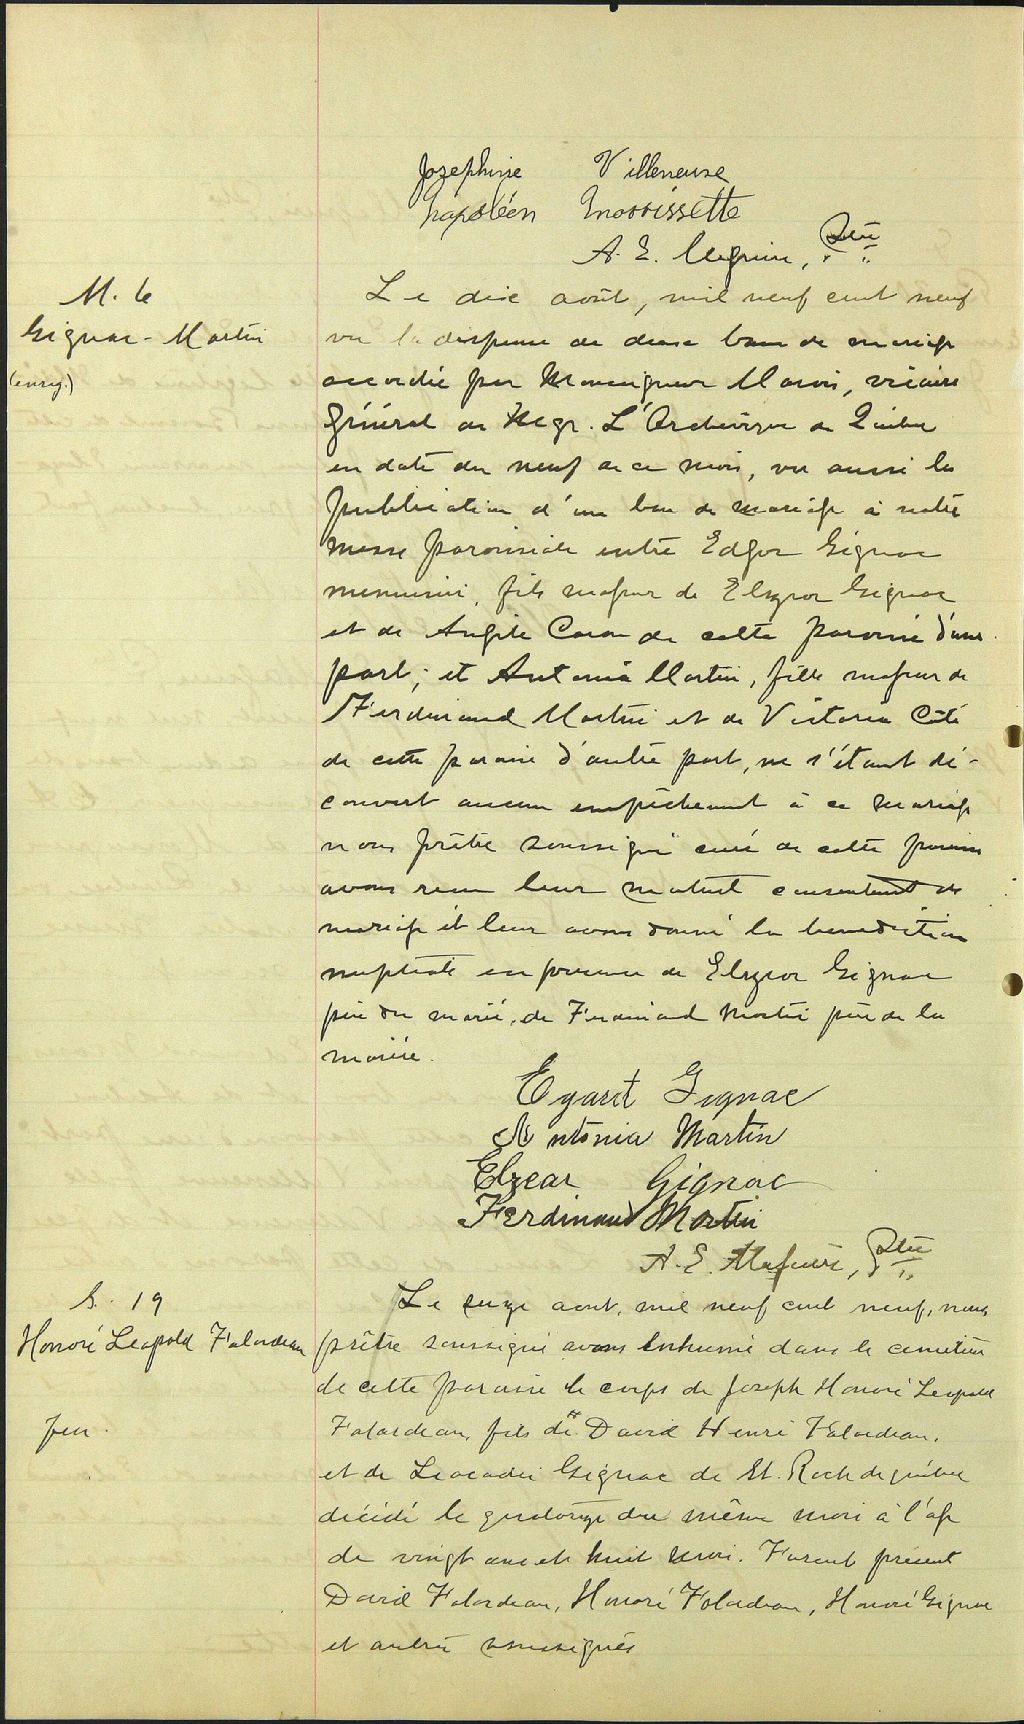 Josephine Villeneuve
Napoléon Morrissette
A. E. Ptre
M. 6
Gignac - Martin
(enreg.)
Le dix août, mil neuf cent neuf
vu la dispense de deux bans de mariage
accordée par Monseigneur Marois, vicaire
général de Mgr. L'Archévêque de Québec
en date du neuf de ce mois, vu aussi la
publication d'un ban de mariage à notre
messe paroissiale entre Edgar Gignac
menuisier, fils majeur de Elzear Gignac
et de Angèle Caron de cette paroisse d'une
part; et Antonia Martin, fille majeure de
Ferdinand Martin et de Victoria Côté
de cette paroisse d'autre part, ne s'étant dé-
couvert aucun empêchement à ce mariage
nous prêtre soussigné curé de cette paroisse
avons reçu leur mutuel consentement de
mariage et leur avons donné la bénédiction
nuptiale en présence de Elzear Gignac
père du marié, de Ferdinand Martin père de la
mariée.
Egard Gignac
Antonia Martin
Elzear Gignac
Ferdinand Martin
A. E. Ptre
S. 19
Honoré Leopold Falardeau
Le seize aout, mil neuf cent neuf, nous
prêtre soussigné avons inhumé dans le cimetière
de cette paroisse le corps de Joseph Honoré Leopold
Falardeau, fils de David Henri Falardeau,
et de Leocadie Gignac de St. Roch de Québec
décédé le quatorze du même mois à l'age
de vingt ans et huit mois. Furent présent
David Falardeau, Honoré Falardeau, Honoré Gignac
et autres soussignés